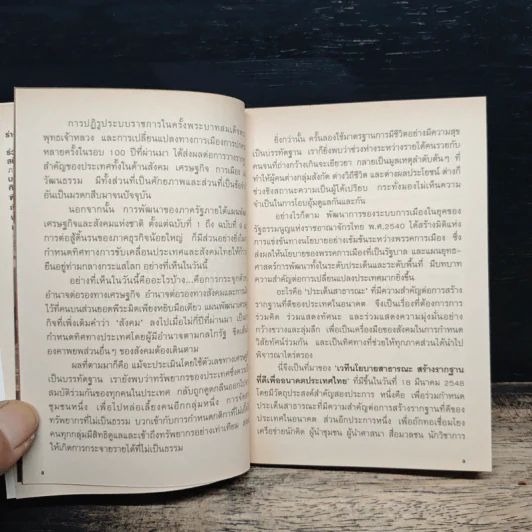 การปฏิรูประบบราชการในครั้งพระบาทสมเด็จพระ
พุทธเจ้าหลวง และการเปลี่ยนแปลงทางการเมืองการปก
หลายครั้งในรอบ 100 ปีที่ผ่านมา ได้ส่งผลต่อการวางราก
สำคัญของประเทศทั้งในด้านสังคม เศรษฐกิจ การเมือง
วัฒนธรรม มีทั้งส่วนที่เป็นศักยภาพและส่วนที่เป็นข้อ
อันเป็นมรดกสืบมาจนปัจจุบัน
นอกจากนั้น การพัฒนาของภาครัฐภายใต้แผนพัฒ
เศรษฐกิจและสังคมแห่งชาติ ตั้งแต่ฉบับที่ 1 ถึง ฉบับที่ 9
การต่อสู้ดิ้นรนของภาคธุรกิจน้อยใหญ่ ก็มีส่วนอย่างยิ่ง
กำหนดทิศทางการขับเคลื่อนประเทศและสังคมไทยให้ก้าว
ยืนอยู่ท่ามกลางกระแสโลก อย่างที่เห็นในวันนี้
อย่างที่เห็นในวันนี้คืออะไรบ้าง...คือการกระจุกตัว
อำนาจต่อรองทางเศรษฐกิจ อำนาจต่อรองทางสังคมและการเมือง
ไว้ที่คนบนส่วนยอดพีระมิดเพียงหยิบมือเดียว แผนพัฒนาเศรษฐ
กิจที่เพิ่งเติมคำว่า 'สังคม' ลงไปเมื่อไม่กี่ปีที่ผ่านมา เป็นการ
กำหนดทิศทางประเทศโดยผู้มีอำนาจตามกลไกรัฐ ซึ่ง
องคาพยพส่วนอื่นๆ ของสังคมต้องเดินตาม
ผลที่ตามมาก็คือ แม้จะประเมินโดยใช้ตัวเลขทางเศรษฐ
เป็นบรรทัดฐาน เรายังพบว่าทรัพยากรของประเทศซึ่งควร
สมบัติร่วมกันของทุกคนในประเทศ กลับถูกดูดกลืนออกไปจาก
ชุมชนหนึ่ง เพื่อไปหล่อเลี้ยงคนอีกกลุ่มหนึ่ง การจัดสรร
ทรัพยากรที่ไม่เป็นธรรม บวกเข้ากับการกำหนดกติกาที่ไม่เอื้อ
คนทุกกลุ่มมีสิทธิดูแลและเข้าถึงทรัพยากรอย่างเท่าเทียม
ให้เกิดการกระจายรายได้ที่ไม่เป็นธรรม
8
ยิ่งกว่านั้น ครั้นลองใช้มาตรฐานการมีชีวิตอย่างมีความสุข
เป็นบรรทัดฐาน เราก็ยิ่งพบว่าช่วงห่างระหว่างรายได้คนรวยกับ
คนจนที่ถ่างกว้างเกินจะเยียวยา กลายเป็นมูลเหตุลำดับต้นๆ ที่
ทำให้ผู้คนต่างกลุ่มสังกัด ต่างวิถีชีวิต และต่างผลประโยชน์ ต่างก็
ช่วงชิงสถานะความเป็นผู้ได้เปรียบ กระทั่งมองไม่เห็นความ
จำเป็นในการโอบอุ้มดูแลกันและกัน
อย่างไรก็ตาม พัฒนาการของระบบการเมืองในยุคของ
รัฐธรรมนูญแห่งราชอาณาจักรไทย พ.ศ.2540 ได้สร้างมิติแห่ง
การแข่งขันทางนโยบายอย่างเข้มข้นระหว่างพรรคการเมือง ซึ่ง
ส่งผลให้นโยบายของพรรคการเมืองที่เป็นรัฐบาล และแผนยุทธ-
ศาสตร์การพัฒนาทั้งในระดับประเด็นและระดับพื้นที่ มีบทบาท
ความสำคัญต่อการเปลี่ยนแปลงประเทศมากยิ่งขึ้น
อะไรคือ 'ประเด็นสาธารณะ' ที่มีความสำคัญต่อการสร้าง
รากฐานที่ดีของประเทศไทยในอนาคต จึงเป็นเรื่องที่ต้องการการ
ร่วมคิด ร่วมแสดงทัศนะ และร่วมแสดงความมุ่งมั่นอย่าง
กว้างขวางและลุ่มลึก เพื่อเป็นเครื่องมือของสังคมในการกำหนด
วิสัยทัศน์ร่วมกัน และเป็นทิศทางที่ช่วยให้ทุกภาคส่วนได้นำไป
พิจารณาไตร่ตรอง
นี่จึงเป็นที่มาของ 'เวทีนโยบายสาธารณะ สร้างรากฐาน
ที่ดีเพื่ออนาคตประเทศไทย' ที่มีขึ้นในวันที่ 18 มีนาคม 2548
โดยมีวัตถุประสงค์สำคัญสองประการ หนึ่งคือ เพื่อร่วมกำหนด
ประเด็นสาธารณะที่มีความสำคัญต่อการสร้างรากฐานที่ดีของ
ประเทศในอนาคต ส่วนอีกประการหนึ่ง เพื่อถักทอเชื่อมโยง
เครือข่ายนักคิด ผู้นำชุมชน ผู้นำศาสนา สื่อมวลชน นักวิชาการ
9